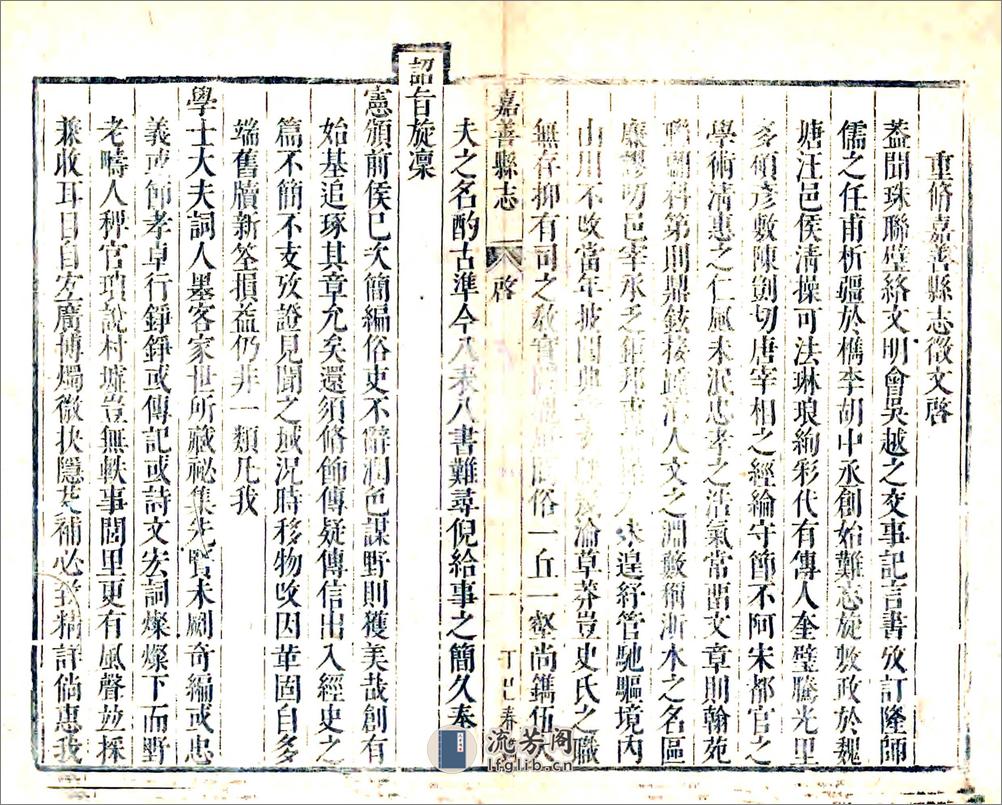 重脩嘉善縣志徵文啓
蓋聞珠聯璧絡文明會吳越之交事記言書攷訂隆師
儒之任甫析疆於檇李胡中丞創始難忘旋敷政於魏
塘汪邑侯清操可法琳琅絢彩代有傳人奎璧騰光里
多碩彥敷陳剴切唐宰相之經綸守節不阿宋都官之
學術清惠之仁風未泯忠孝之浩氣常留文章則翰苑
聯科第則鼎鉉接人文之淵藪稱浙水之名區
廉邑宰永之未遑紓管馳驅境內
山川不改當年披圖典淪草莽豈史氏之職
無存抑有司之教俗一丘一壑尚鐫伍大
嘉善縣志 啓 一 丁巳春
夫之名酌古準今八表八書難尋倪給事之簡久奉
詔旨旋稟
憲頒前侯已次簡編俗吏不辭潤色謀野則獲美哉創有
始基追琢其章允矣還須脩飾傳疑傳信出入經史之
篇不簡不支攷證見聞之域況時移物改因革固自多
端舊牘新筌損益仍非一類凡我
學士大夫詞人墨客家世所藏祕集先賢未刷奇編或忠
義或節孝卓行錚錚或傳記或詩文宏詞燦燦下而野
老疇人稗官瑣說村墟豈無軼事閭里更有風聲並採
兼收耳目自茲廣博燭微抉隱芟補必致精詳倘惠我
流芳阁
lfglib.cn